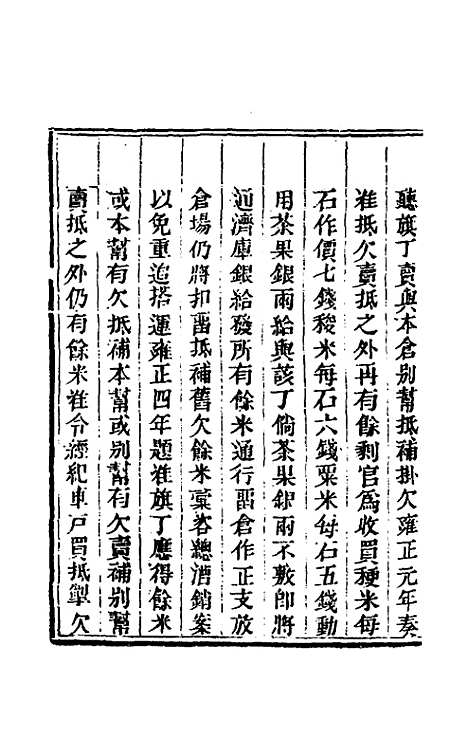 聽旗丁賣與本倉别幫抵補掛欠雍正元年奏
准抵欠賣抵之外再有餘剩官爲收買稉米每
石作價七錢稜米每石六錢粟米每石五錢動
用茶果銀兩給與該丁倘茶果銀兩不敷即將
通濟庫銀給發所有餘米通行畱倉作正支放
倉場仍將扣畱抵補舊欠餘米彙咨總漕銷案
以免重追搭運雍正四年題准旗丁應得餘米
或本幫有欠抵補本幫或别幫有欠賣補别幫
賣抵之外仍有餘米准令經紀車戸買抵掣欠